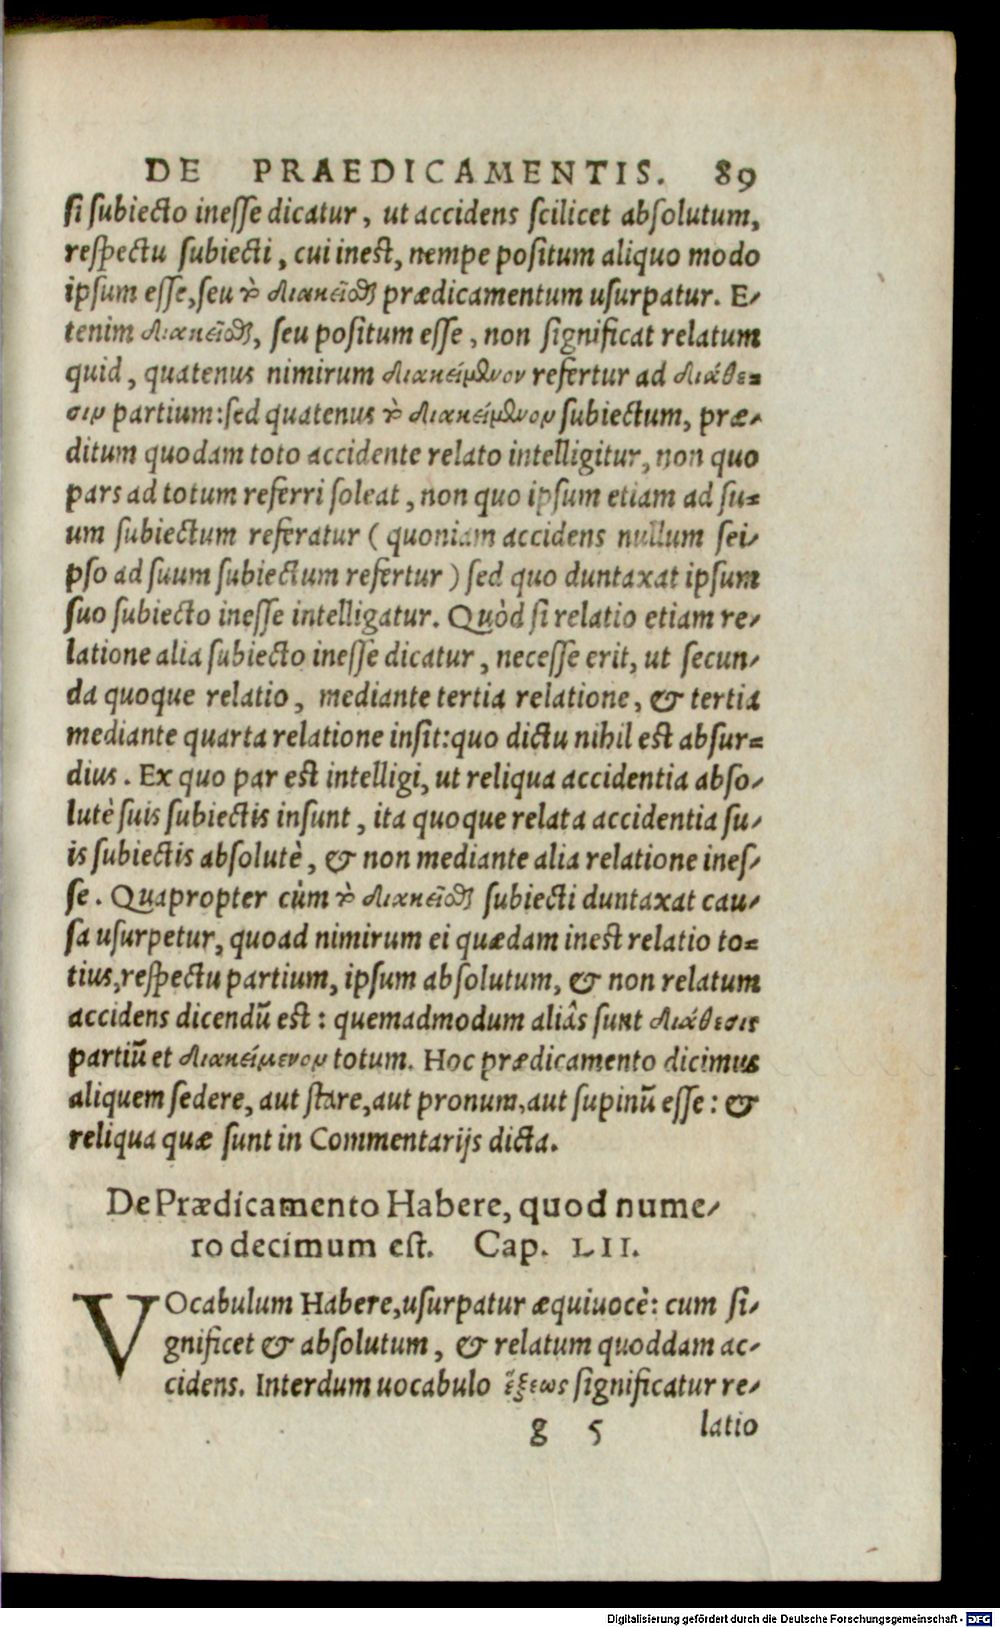 DE PRAEDICAMENTIS. 89
si subiecto inesse dicatur, ut accidens scilicet absolutum,
respectu subiecti, cui inest, nempe positum aliquo modo
ipsum esse, seu τὸ διακεῖσθαι prædicamentum usurpatur. E-
tenim διακεῖσθαι, seu positum esse, non significat relatum
quid, quatenus nimirum διακείμενον refertur ad διάθε-
σιν partium: sed quatenus τὸ διακείμενον subiectum, præ-
ditum quodam toto accidente relato intelligitur, non quo
pars ad totum referri soleat, non quo ipsum etiam ad su-
um subiectum referatur (quoniam accidens nullum sei-
pso ad suum subiectum refertur) sed quo duntaxat ipsum
suo subiecto inesse intelligatur. Quòd si relatio etiam re-
latione alia subiecto inesse dicatur, necesse erit, ut secun-
da quoque relatio, mediante tertia relatione, & tertia
mediante quarta relatione insit: quo dictu nihil est absur-
dius. Ex quo par est intelligi, ut reliqua accidentia abso-
lutè suis subiectis insunt, ita quoque relata accidentia su-
is subiectis absolutè, & non mediante alia relatione ines-
se. Quapropter cùm τὸ διακεῖσθαι subiecti duntaxat cau-
sa usurpetur, quoad nimirum ei quædam inest relatio to-
tius, respectu partium, ipsum absolutum, & non relatum
accidens dicendũ est: quemadmodum aliâs sunt διάθεσις
partiũ et διακείμενον totum. Hoc prædicamento dicimus
aliquem sedere, aut stare, aut pronum, aut supinũ esse: &
reliqua quæ sunt in Commentarijs dicta.
De Prædicamento Habere, quod nume-
ro decimum est. Cap. LII.
VOcabulum Habere, usurpatur æquiuocè: cum si-
gnificet & absolutum, & relatum quoddam ac-
cidens. Interdum uocabulo ἕξεως significatur re-
g 5 latio
Digitalisierung gefördert durch die Deutsche Forschungsgemeinschaft - DFG